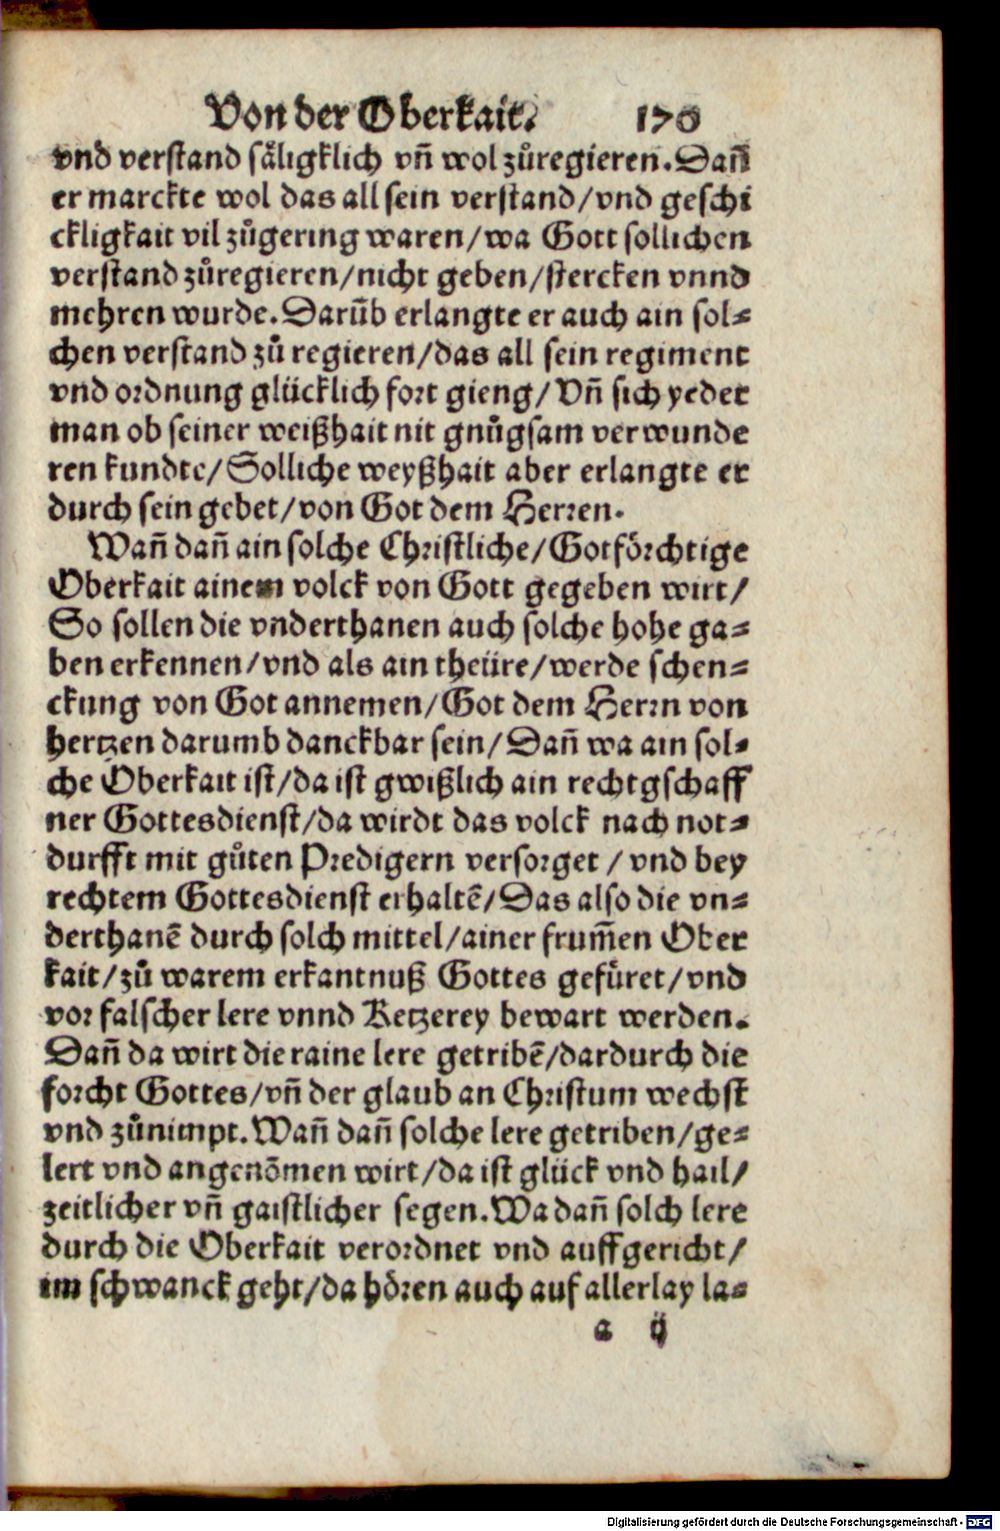 Von der Oberkait. 170
vnd verstand sāligklich vñ wol zůregieren. Dañ
er marckte wol das all sein verstand/vnd geschi
ckligkait vil zůgering waren/wa Gott sollichen
verstand zůregieren/nicht geben/stercken vnnd
mehren wurde. Darũb erlangte er auch ain sol⸗
chen verstand zů regieren/das all sein regiment
vnd ordnung glücklich fort gieng/Vñ sich yeder
man ob seiner weißhait nit gnůgsam verwunde
ren kundte/Solliche weyßhait aber erlangte er
durch sein gebet/von Got dem Herren.
Wañ dañ ain solche Christliche/Gotförchtige
Oberkait ainem volck von Gott gegeben wirt/
So sollen die vnderthanen auch solche hohe ga⸗
ben erkennen/vnd als ain theüre/werde schen⸗
ckung von Got annemen/Got dem Herrn von
hertzen darumb danckbar sein/Dañ wa ain sol⸗
che Oberkait ist/da ist gwißlich ain rechtgschaff
ner Gottesdienst/da wirdt das volck nach not⸗
durfft mit gůten Predigern versorget/vnd bey
rechtem Gottesdienst erhaltẽ/Das also die vn⸗
derthanẽ durch solch mittel/ainer frum̃en Ober
kait/zů warem erkantnuß Gottes gefüret/vnd
vor falscher lere vnnd Ketzerey bewart werden.
Dañ da wirt die raine lere getribẽ/dardurch die
forcht Gottes/vñ der glaub an Christum wechst
vnd zůnimpt. Wañ dañ solche lere getriben/ge⸗
lert vnd angenõmen wirt/da ist glück vnd hail/
zeitlicher vñ gaistlicher segen. Wa dañ solch lere
durch die Oberkait verordnet vnd auffgericht/
im schwanck geht/da hören auch auf allerlay la⸗
a ij
Digitalisierung gefördert durch die Deutsche Forschungsgemeinschaft - DFG